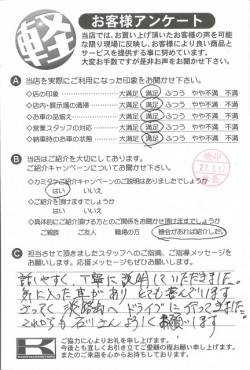 軽
お客様アンケート
当店では、お買い上げ頂いたお客様の声を可能
な限り現場に反映し、お客様により良い商品と
サービスを提供する事に努めています。
大変お手数ですが是非お声をお聞かせ下さい。
A 当店を実際にご利用になった印象をお聞かせ下さい。
◇店の印象 大満足 満足 ふつう やや不満 不満
◇店内・展示場の清掃 大満足 満足 ふつう やや不満 不満
◇お車の品揃え 大満足 満足 ふつう やや不満 不満
◇営業スタッフの対応 大満足 満足 ふつう やや不満 不満
◇ 大満足 満足 ふつう やや不満 不満
B 当店はご紹介を大切にしております。
ご紹介キャンペーンについてお聞かせ下さい。
◇カミタケご紹介キャンペーンのご説明はありましたでしょうか
はい いいえ
◇ご紹介を頂けますでしょうか
はい いいえ
◇具体的にご紹介頂ける方とのご関係をお聞かせ頂けますでしょうか
ご親族 ご友人 職場の方 機会があれば紹介した
C 担当させて頂きましたスタッフへのご指摘、ご要望等お聞かせ
お願いします。応援メッセージもぜひお願いします。
話しやすく、丁寧に説明していただきました。
気に入った車があり とても喜んでいます
さっそく 淡路島へ ドライブに行ってきました。
これからも 石川さん よろしくお願いします
K
ご協力に心よりお礼を申し上げます。
今後とも宜しくお引き立てご愛顧の程お願い申し上げます。
またのご来店を心からお待ちしております。